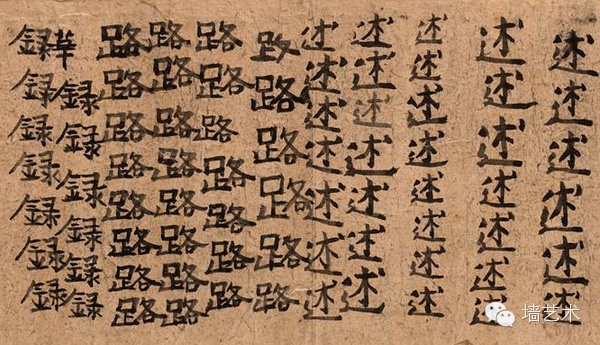 述述述述述述
述述述述述述述
述述述述述述述述
述述述述述述述
述述述述述述述
路路路路路路
路路路路路路路
路路路路路路路路
路路路路路路路路
華録録録録録録
録録録録録録録
墙艺术